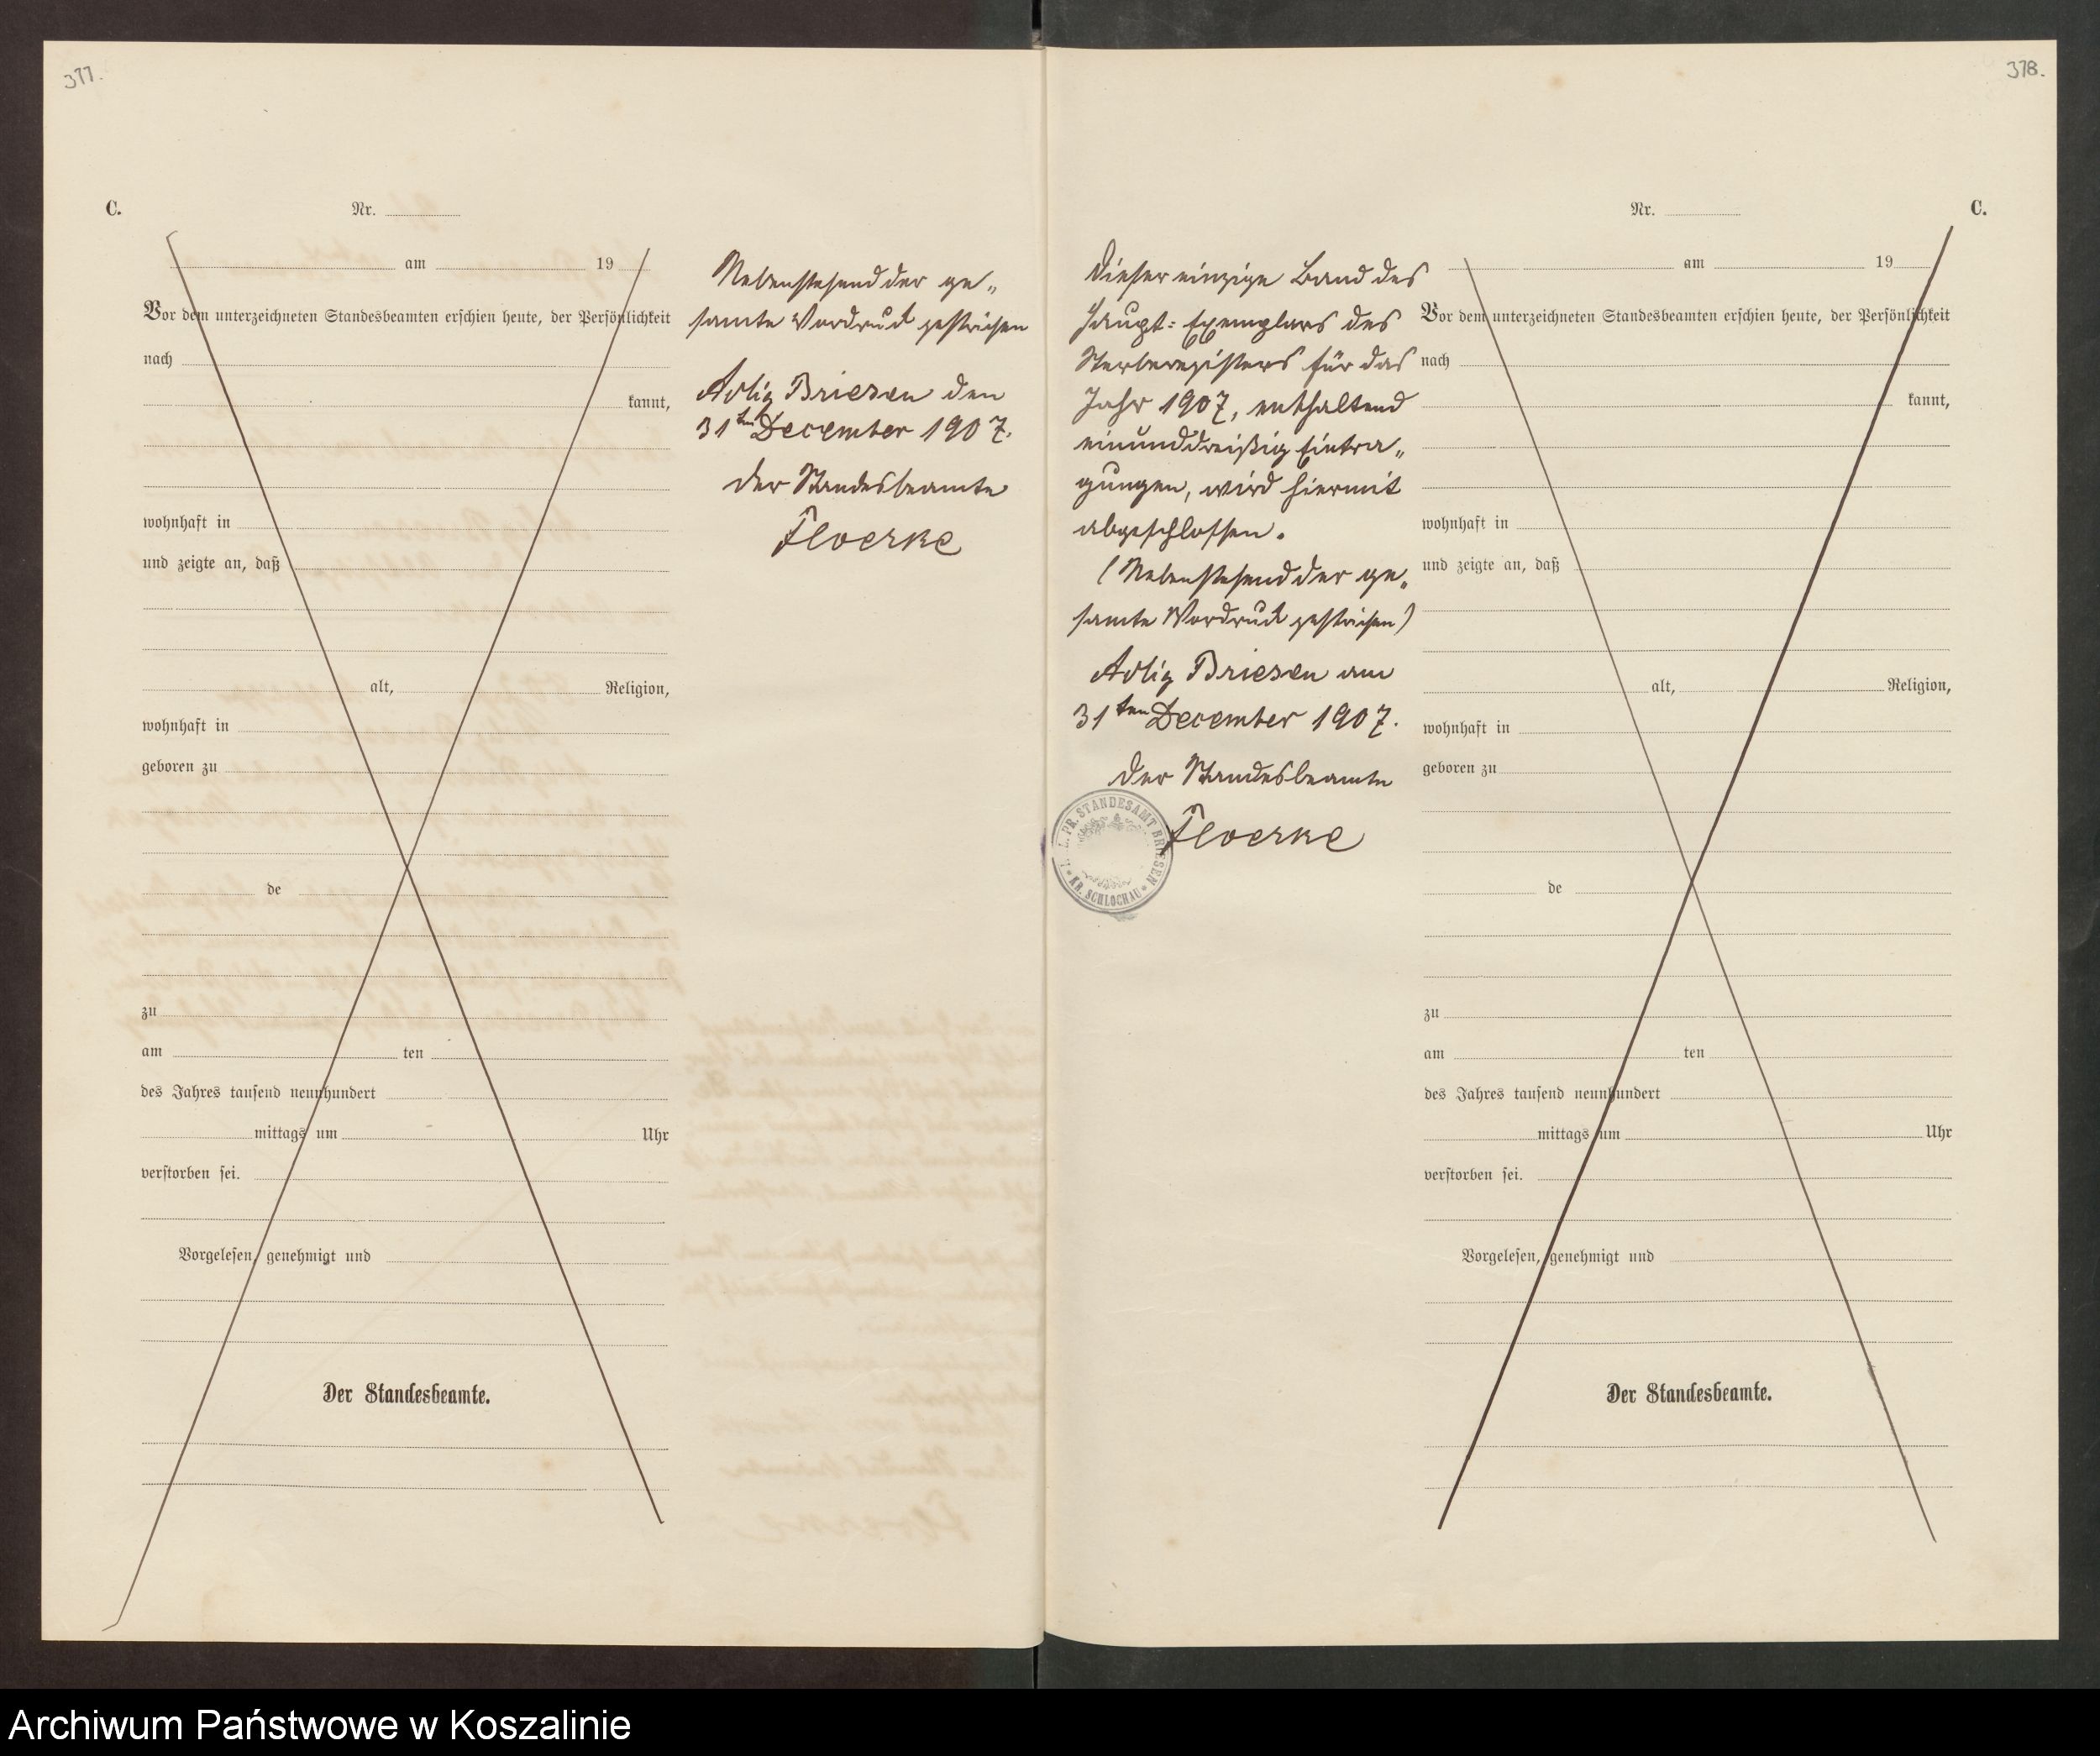 377.
C.
Nr.
am 19
Vor dem unterzeichneten Standesbeamten erschien heute, der Persönlichkeit
nach
kannt,
wohnhaft in
und zeigte an, daß
alt, Religion,
wohnhaft in
geboren zu
de
zu
am ten
des Jahres tausend neunhundert
mittags um Uhr
verstorben sei.
Vorgelesen, genehmigt und
Der Standesbeamte.
Nebenstehend der ge„
samte Vordruck gestrichen
Adlig Briesen den
31ten December 1907.
Der Standesbeamte
Floerke
378.
Dieser einzige Band des
Haupt=Exemplars des
Sterberegisters für das
Jahr 1907, enthaltend
einunddreißig Eintra„
gungen, wird hiermit
abgeschlossen.
(Nebenstehend der ge„
samte Vordruck gestrichen)
Adlig Briesen am
31ten December 1907.
Der Standesbeamte
Floerke
PR. STANDESAMT BRIESEN
KR. SCHLOCHAU
Nr.
C.
am 19
Vor dem unterzeichneten Standesbeamten erschien heute, der Persönlichkeit
nach
kannt,
wohnhaft in
und zeigte an, daß
alt, Religion,
wohnhaft in
geboren zu
de
zu
am ten
des Jahres tausend neunhundert
mittags um Uhr
verstorben sei.
Vorgelesen, genehmigt und
Der Standesbeamte.
Archiwum Państwowe w Koszalinie